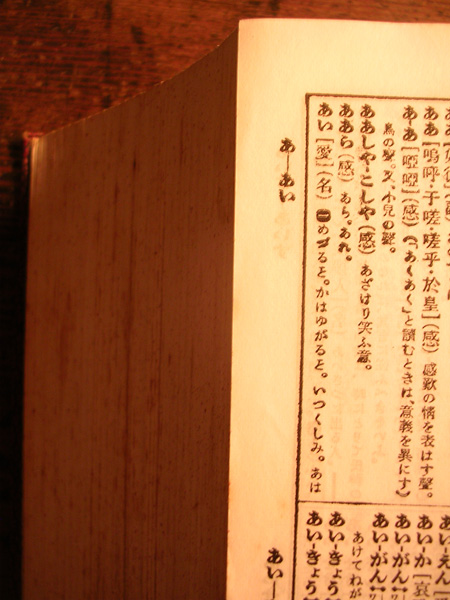 ああ[嗚呼・于嗟・嗟乎・於皇](感) 感歎の情を表はす聲。
あーあ[啞啞](感) (「あくあく」と讀むときは、意義を異にす)
鳥の聲。又、小兒の聲。
ああしや-こしや(感) あざけり笑ふ意。
ああら(感) あら。あれ。
あい[愛](名) ㊀めづること。かはゆがること。いつくしみ。あは
あ―あい
あい-えん
あい-か[哀
あい-がん
あい-がん
あけてねが
あい-きょう
あい-きょう
あい―